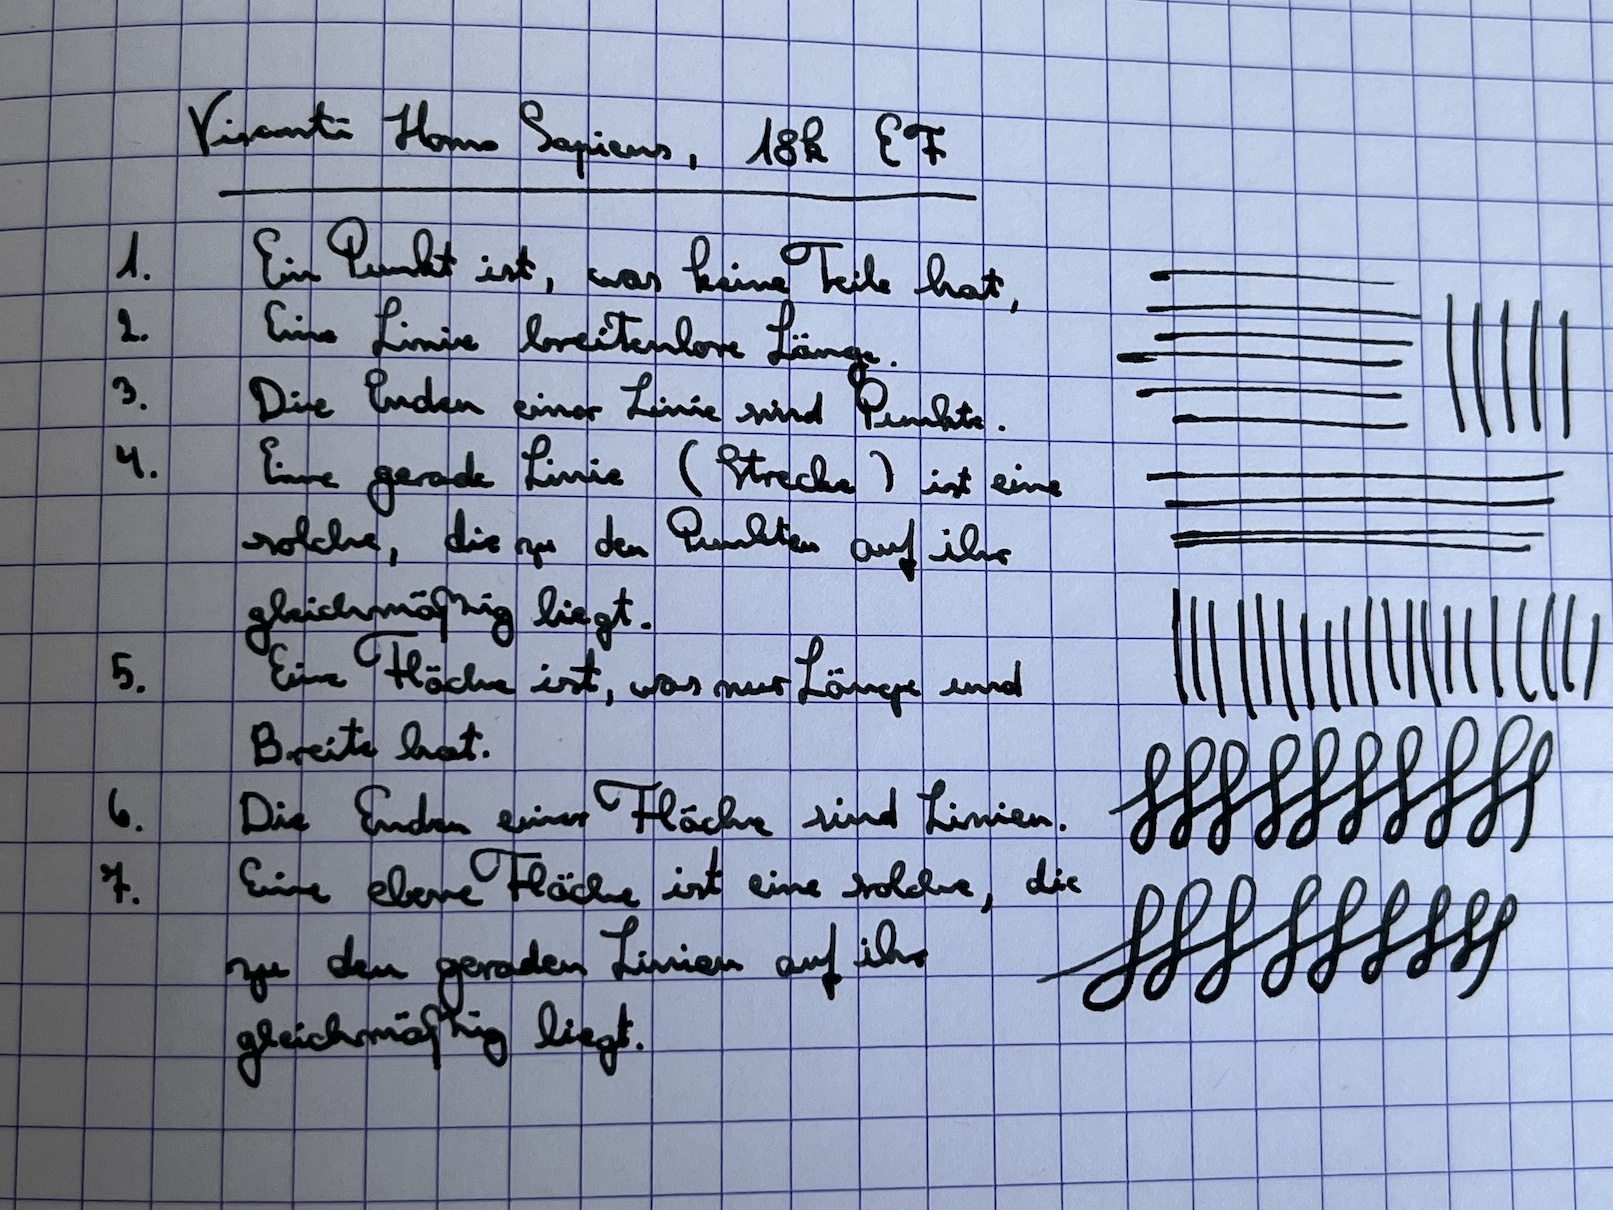 Visconti Homo Sapiens, 18k EF
1. Ein Punkt ist, was keine Teile hat,
2. Eine Linie breitenlose Länge.
3. Die Enden einer Linie sind Punkte.
4. Eine gerade Linie (Strecke) ist eine
solche, die zu den Punkten auf ihr
gleichmäßig liegt.
5. Eine Fläche ist, was nur Länge und
Breite hat.
6. Die Enden einer Fläche sind Linien.
7. Eine ebene Fläche ist eine solche, die
zu den geraden Linien auf ihr
gleichmäßig liegt.